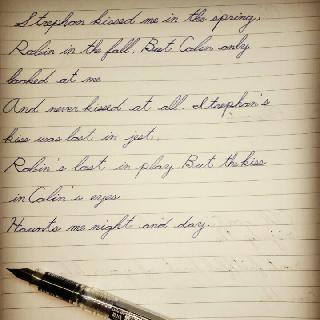 Strephon kissed me in the spring,
Robin in the fall, But Colin only
looked at me
And never kissed at all. Strephon's
kiss was lost in jest,
Robin's lost in play But the kiss
in Colin's eyes
Haunts me night and day.